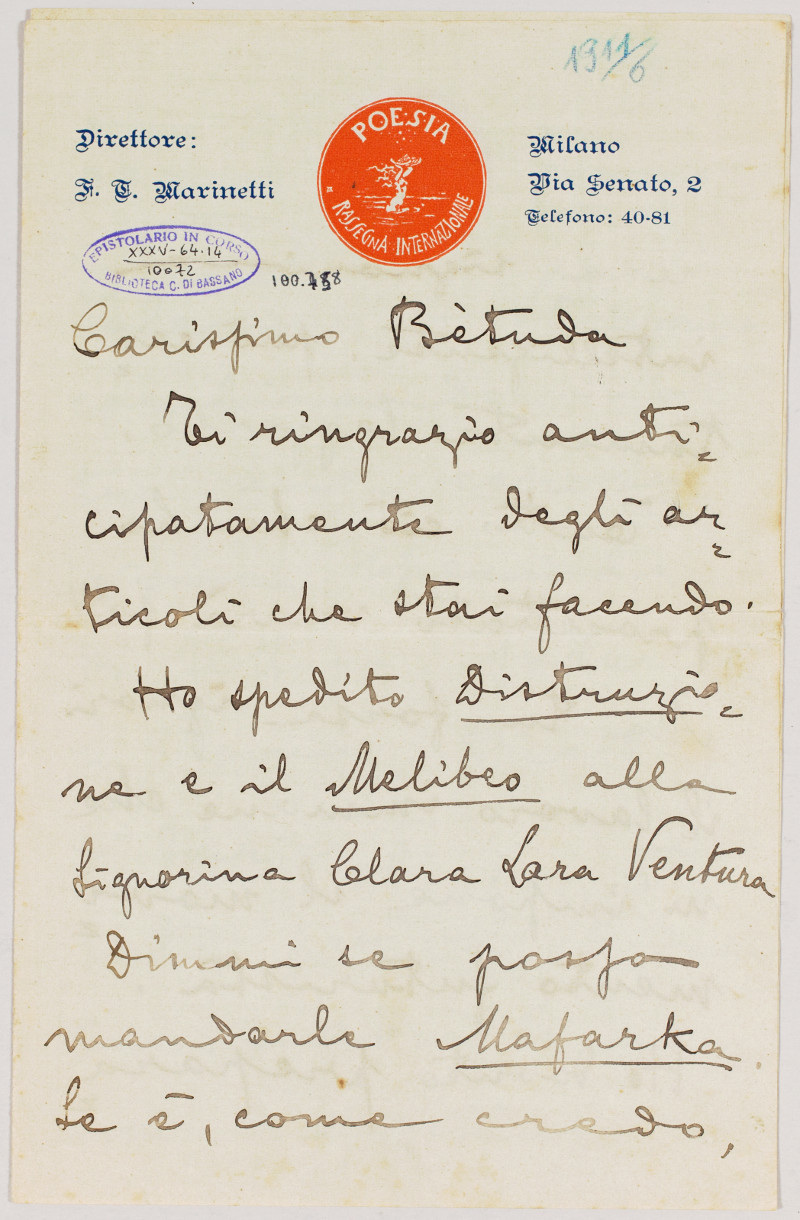 1911/6
Direttore:
F. T. Marinetti
POESIA
RASSEGNA INTERNAZIONALE
Milano
Via Senato, 2
Telefono: 40-81
EPISTOLARIO IN CORSO
XXXV-64.14
10072
BIBLIOTECA C. DI BASSANO
Carissimo Bètuda
Ti ringrazio anti=
cipatamente degli ar=
ticoli che stai facendo.
Ho spedito Distruzio=
ne e il Melibeo alla
Signorina Clara Lara Ventura
Dimmi se possa
mandarle Mafarka.
Se è, come credo,